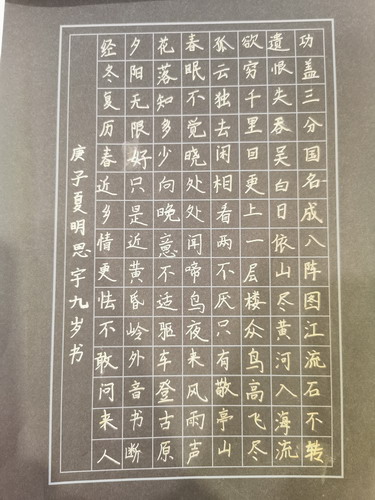 功盖三分国名成八阵图江流石不转
遗恨失吞吴白日依山尽黄河入海流
欲穷千里目更上一层楼众鸟高飞尽
孤云独去闲相看两不厌只有敬亭山
春眠不觉晓处处闻啼鸟夜来风雨声
花落知多少向晚意不适驱车登古原
夕阳无限好只是近黄昏岭外音书断
经冬复历春近乡情更怯不敢问来人
庚子夏明思宇九岁书